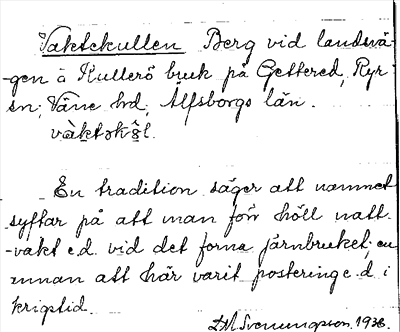 Vaktekullen Berg vid landsvä-
-gen å Hullerö bruk på Gettered, Ryr
sn; Väne hrd, Älfsborgs län.
En tradition säger att namnet
syftar på att man förr höll natt-
-vakt e.d. vid det forna järnbruket; en
annan att här varit postering e.d. i
krigstid.
Svenungsson. 1936.